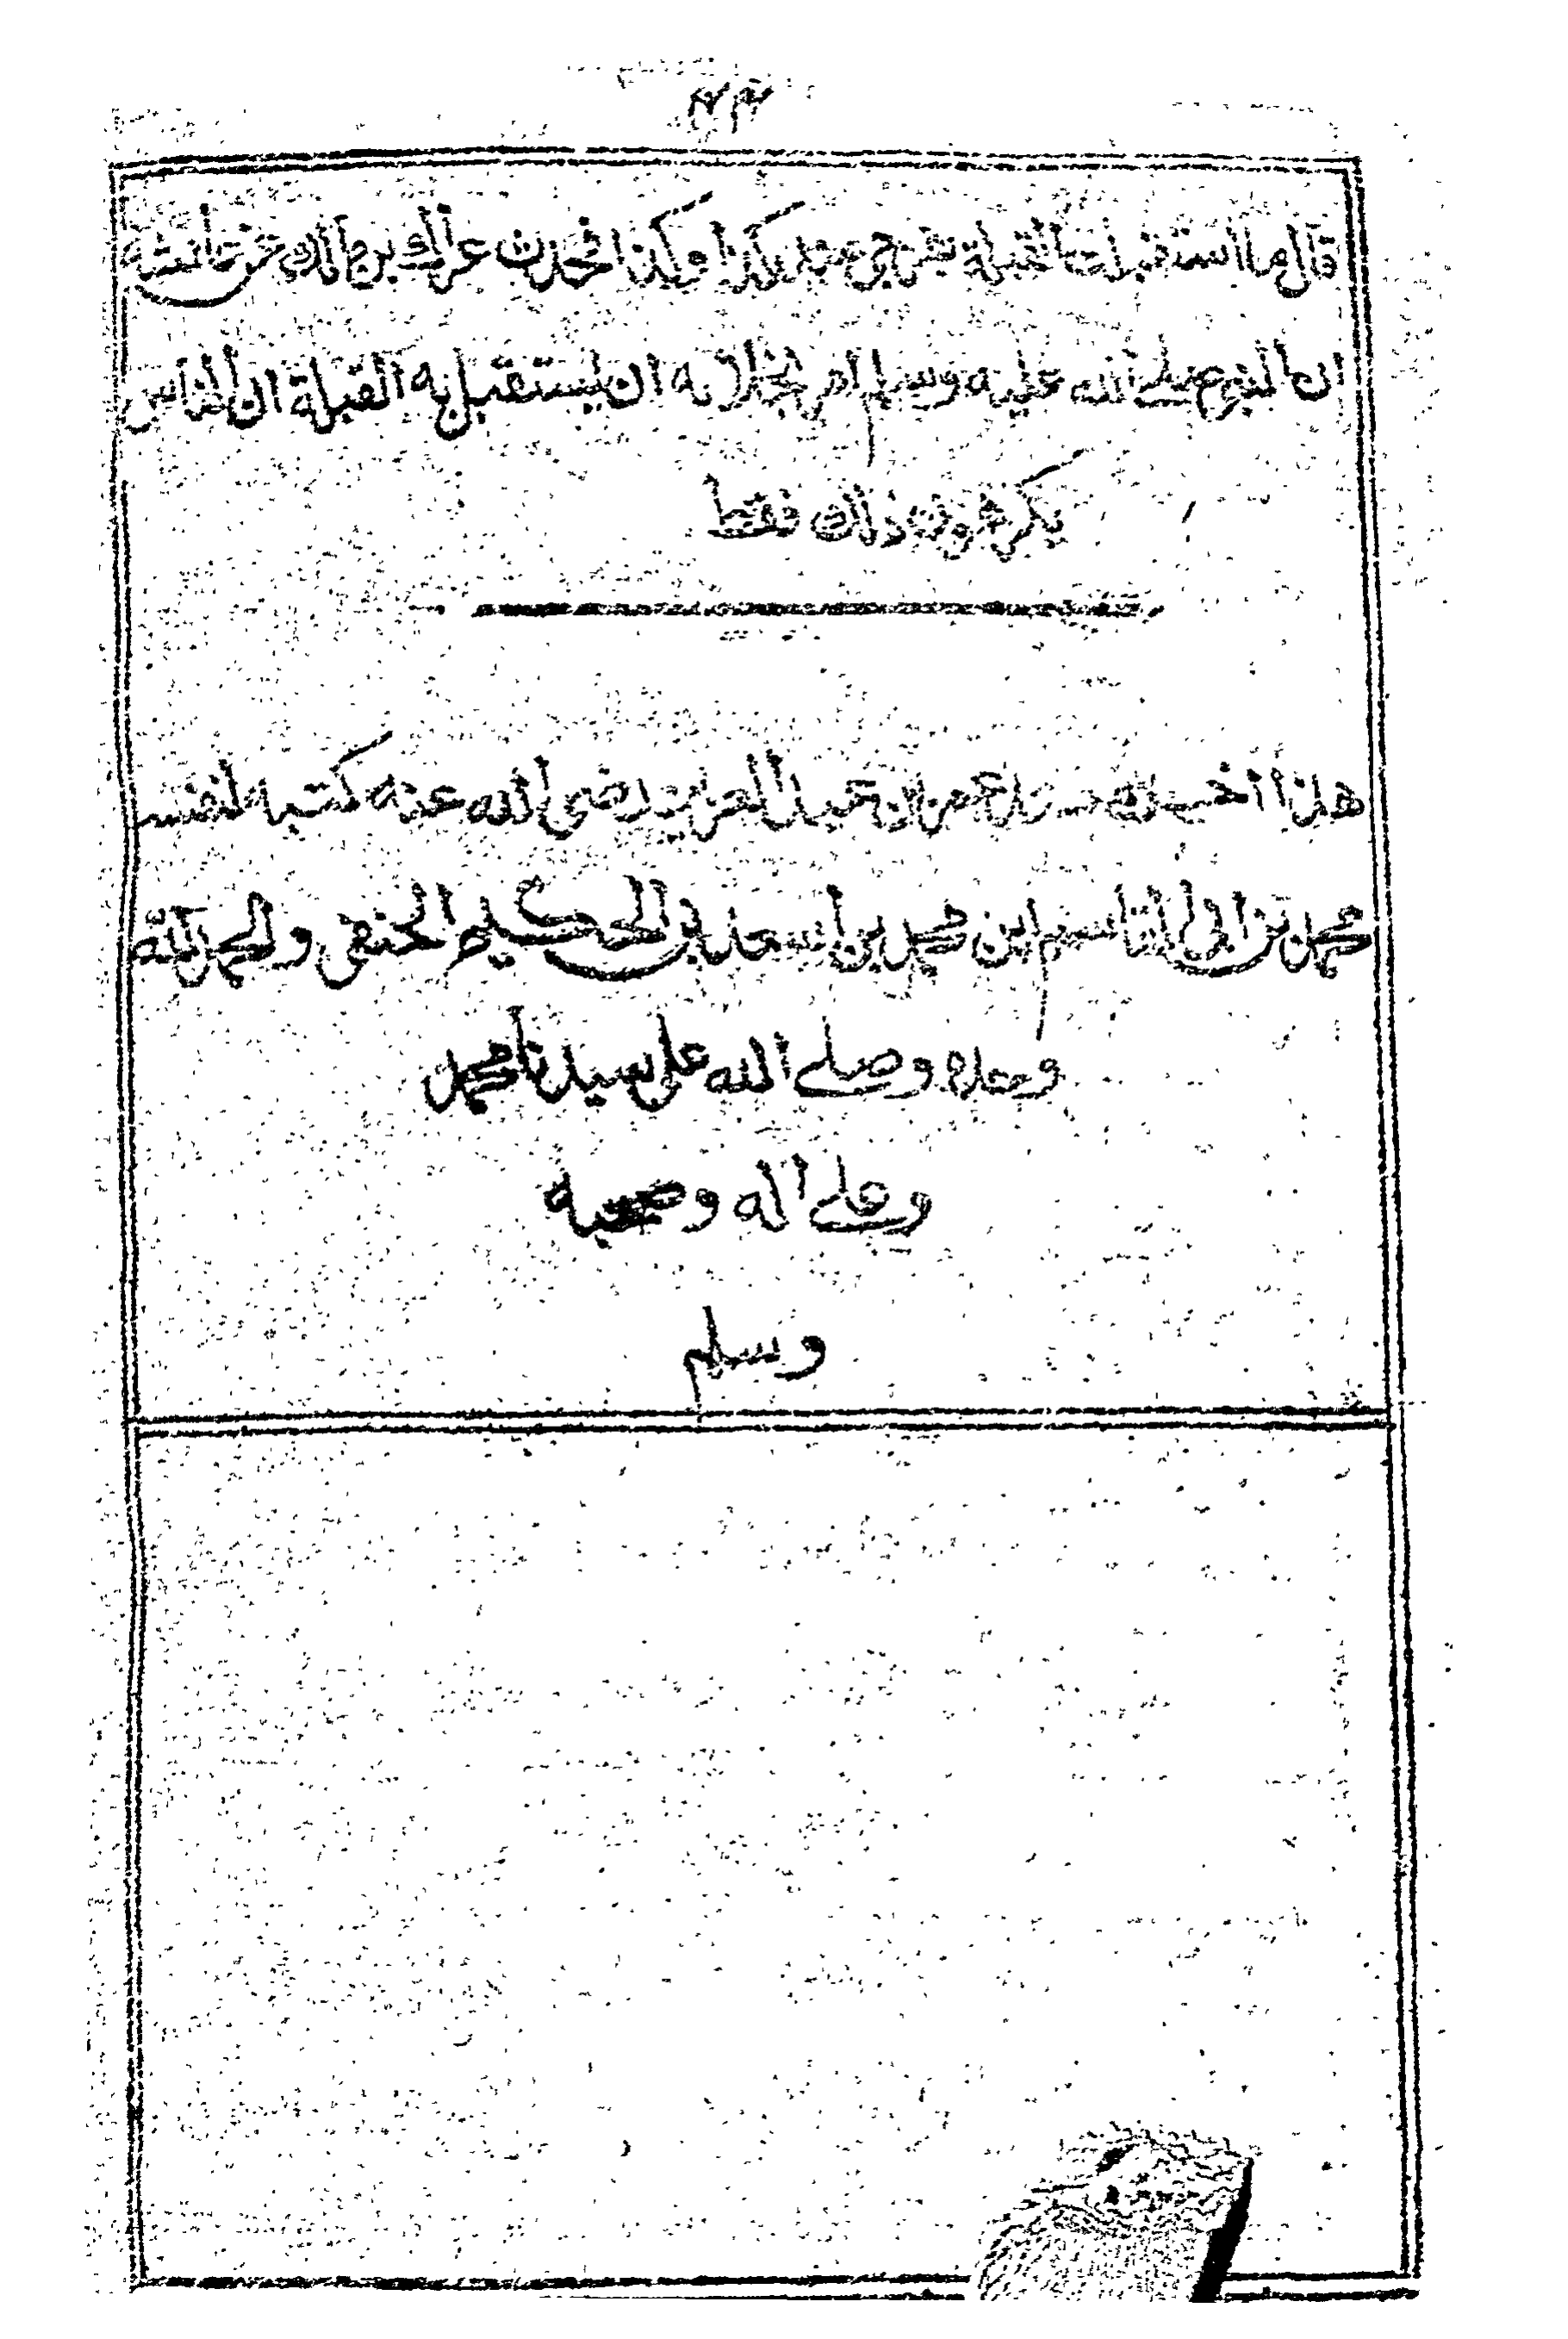 ٤٤
قال ما استقبلت القبلة بفرجي منذ كذا وكذا فحدث عراك بن مالك عن عائشة
ان النبي صلى الله عليه وسلم امر بخلائه ان يستقبل به القبلة ان الناس
يكرهون ذلك فقط
هذا اخر مسند عمر بن عبد العزيز رضي الله عنه كتبه لنفسه
محمد بن ابى القاسم ابن محمد بن اسعد بن الحكيم الحنفي والحمد لله
وحده وصلى الله على سيدنا محمد
وعلى اله وصحبه
وسلم